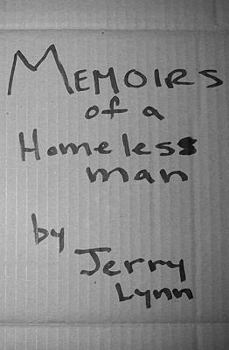 MEMOIRS
of a
Homeless
man
by
Jerry
Lynn